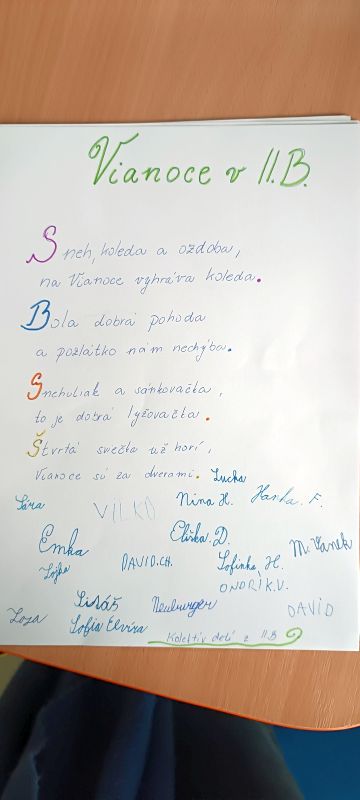 Vianoce v II.B.
Sneh, koleda a ozdoba,
na Vianoce vyhráva koleda.
Bola dobrá pohoda
a pozlátko nám nechýba.
Snehuliak a sánkovačka,
to je dobrá lyžovačka.
Štvrtá svečka už horí,
Vianoce sú za dverami.
Lucka
Sára
VILKO
Nina H.
Hanka. F.
Emka
Eliška. D.
M. Vanek
DAVID.CH.
Sofinka, H.
ONDRÍK.V.
Neuburger
DAVID
Sofia Elvíra
Kolektív detí z II.B